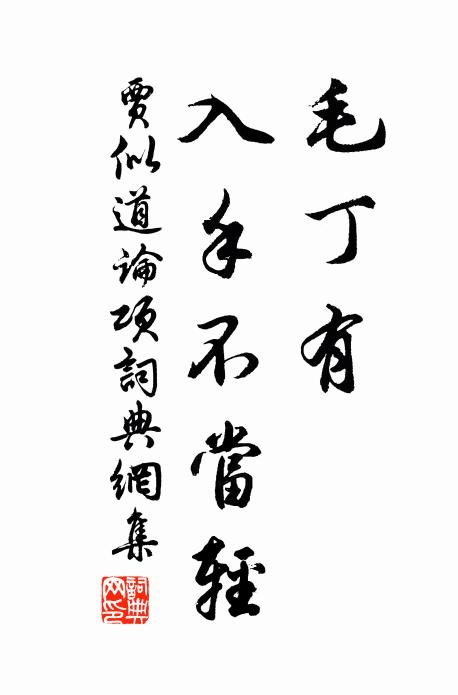 毛丁有
入手不當輕
賈似道論項詞典網集
詞典網印